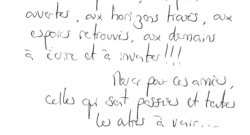 ouvertes, aux horizons tracés, aux
espoirs retrouvés, aux demains
à écrire et à inventer !!!
Merci pour ces années,
celles qui sont passées et toutes
les autres à venir...